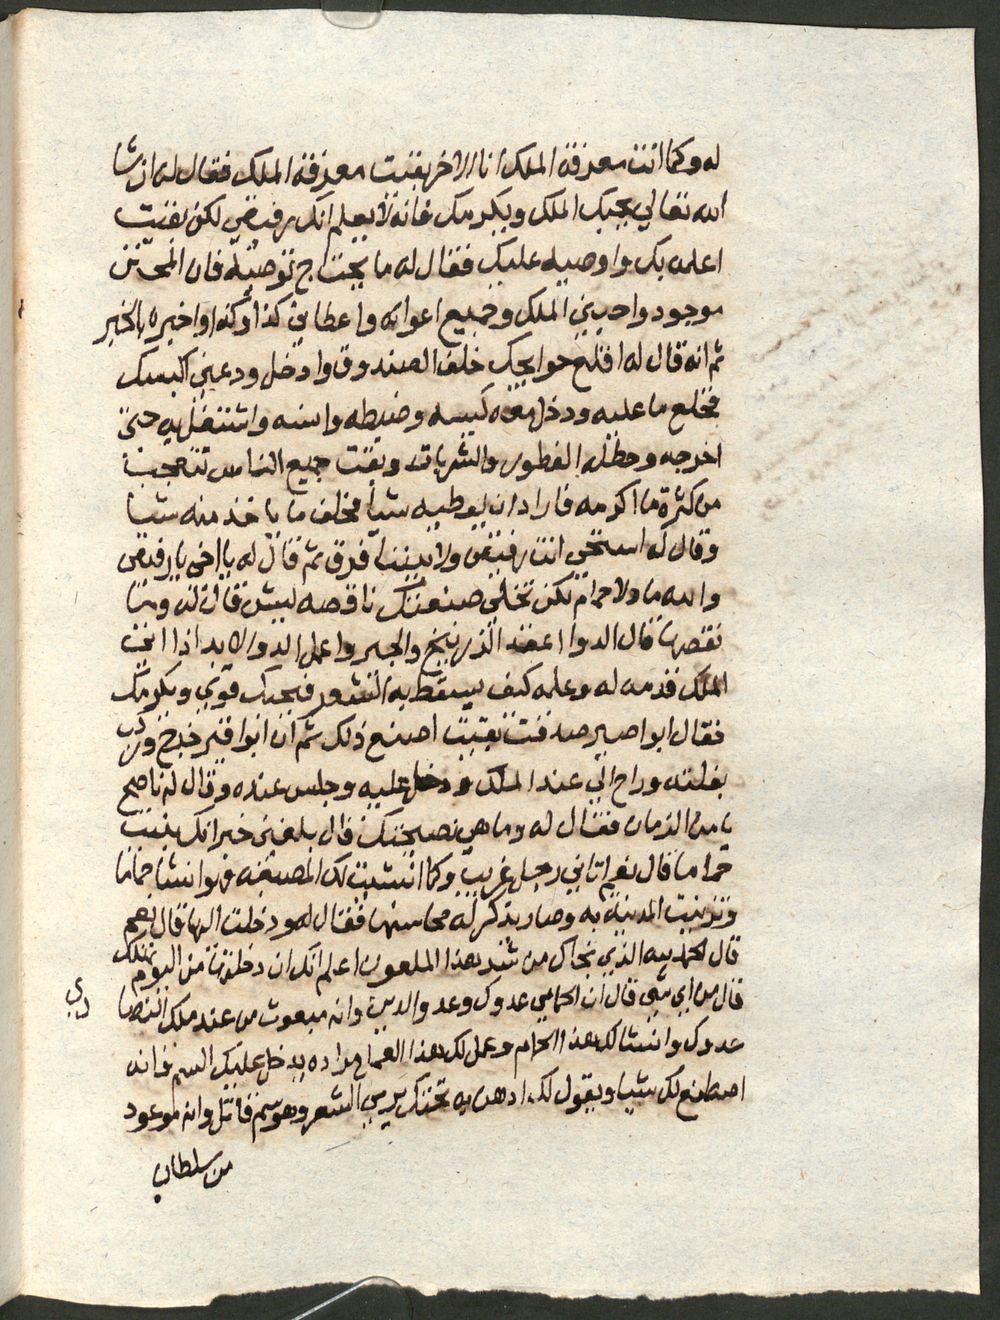 له وكما انت معرفة الملك انا الاخر بقيت معرفة الملك فقال له ان شا
الله تعالي يحبك الملك ويكرمك فانه لا يعلم انك رفيقي لكن بقيت
اعلمه بك واوصيه عليك فقال له ما يحتاج توصيه فان المحنن
موجود واحبني الملك وجميع اعوانه واعطاني كذا وكذا واخبره بالخبر
ثم انه قال له اقلع حوايجك خلف الصندوق وادخل ودعيني اكيسك
فخلع ما عليه ودخل معه كيسه وضبطه واسنه واشتغل به حتي
اخرجه وحط له الفطور والشربات وبقت جميع الناس تتعجب
من كثرة ما اكرمه فاراد ان يعطيه شيأ فحلف ما ياخذ منه شيأ
وقال له استحي انت رفيقي ولا بيننا فرق ثم قال له يا اخي يا رفيقي
والله ما ولا حمام لكن تخلي صنعتك ناقصه ليش قال له وما
نقصها قال الدوا عقد الزرنيخ والجير واعمل الدوا لا بد اذا اتي
الملك قدمه له وعلمه كيف يسقط به الشعر فيحبك قوي ويكرمك
فقال ابو اصير صدقت بقيت اصنع ذلك ثم ان ابو قير خرج وركب
بغلته وراح الي عند الملك ودخل عليه وجلس عنده وقال له ناصح
يا من الزمان فقال له وما هي نصيحتك قال بلغني خبر انك بنيت
حماما قال نعم اتاني رجل غريب وكما انشيت لك المصبغه فهو انشا حماما
وتزينت المدينة به وصار يذكر له محاسنها فقال له ودخلت اليها قال نعم
قال الحمد لله الذي نجاك من شر هذا الملعون اعلم انك ان دخلتها من اليوم تهلك
قال من اي شي قال ان الحمامي عدوك وعدو الدين وانه مبعوث من عند ملك النصاري
عدوك وانشا لك هذا الحمام وعمل لك هذا مراده يدخل عليك السم فانه
اصطنع لك شيا ويقول لك ادهن به تحتك يرمي الشعر وهو سم قاتل وانه موعود
من سلطان